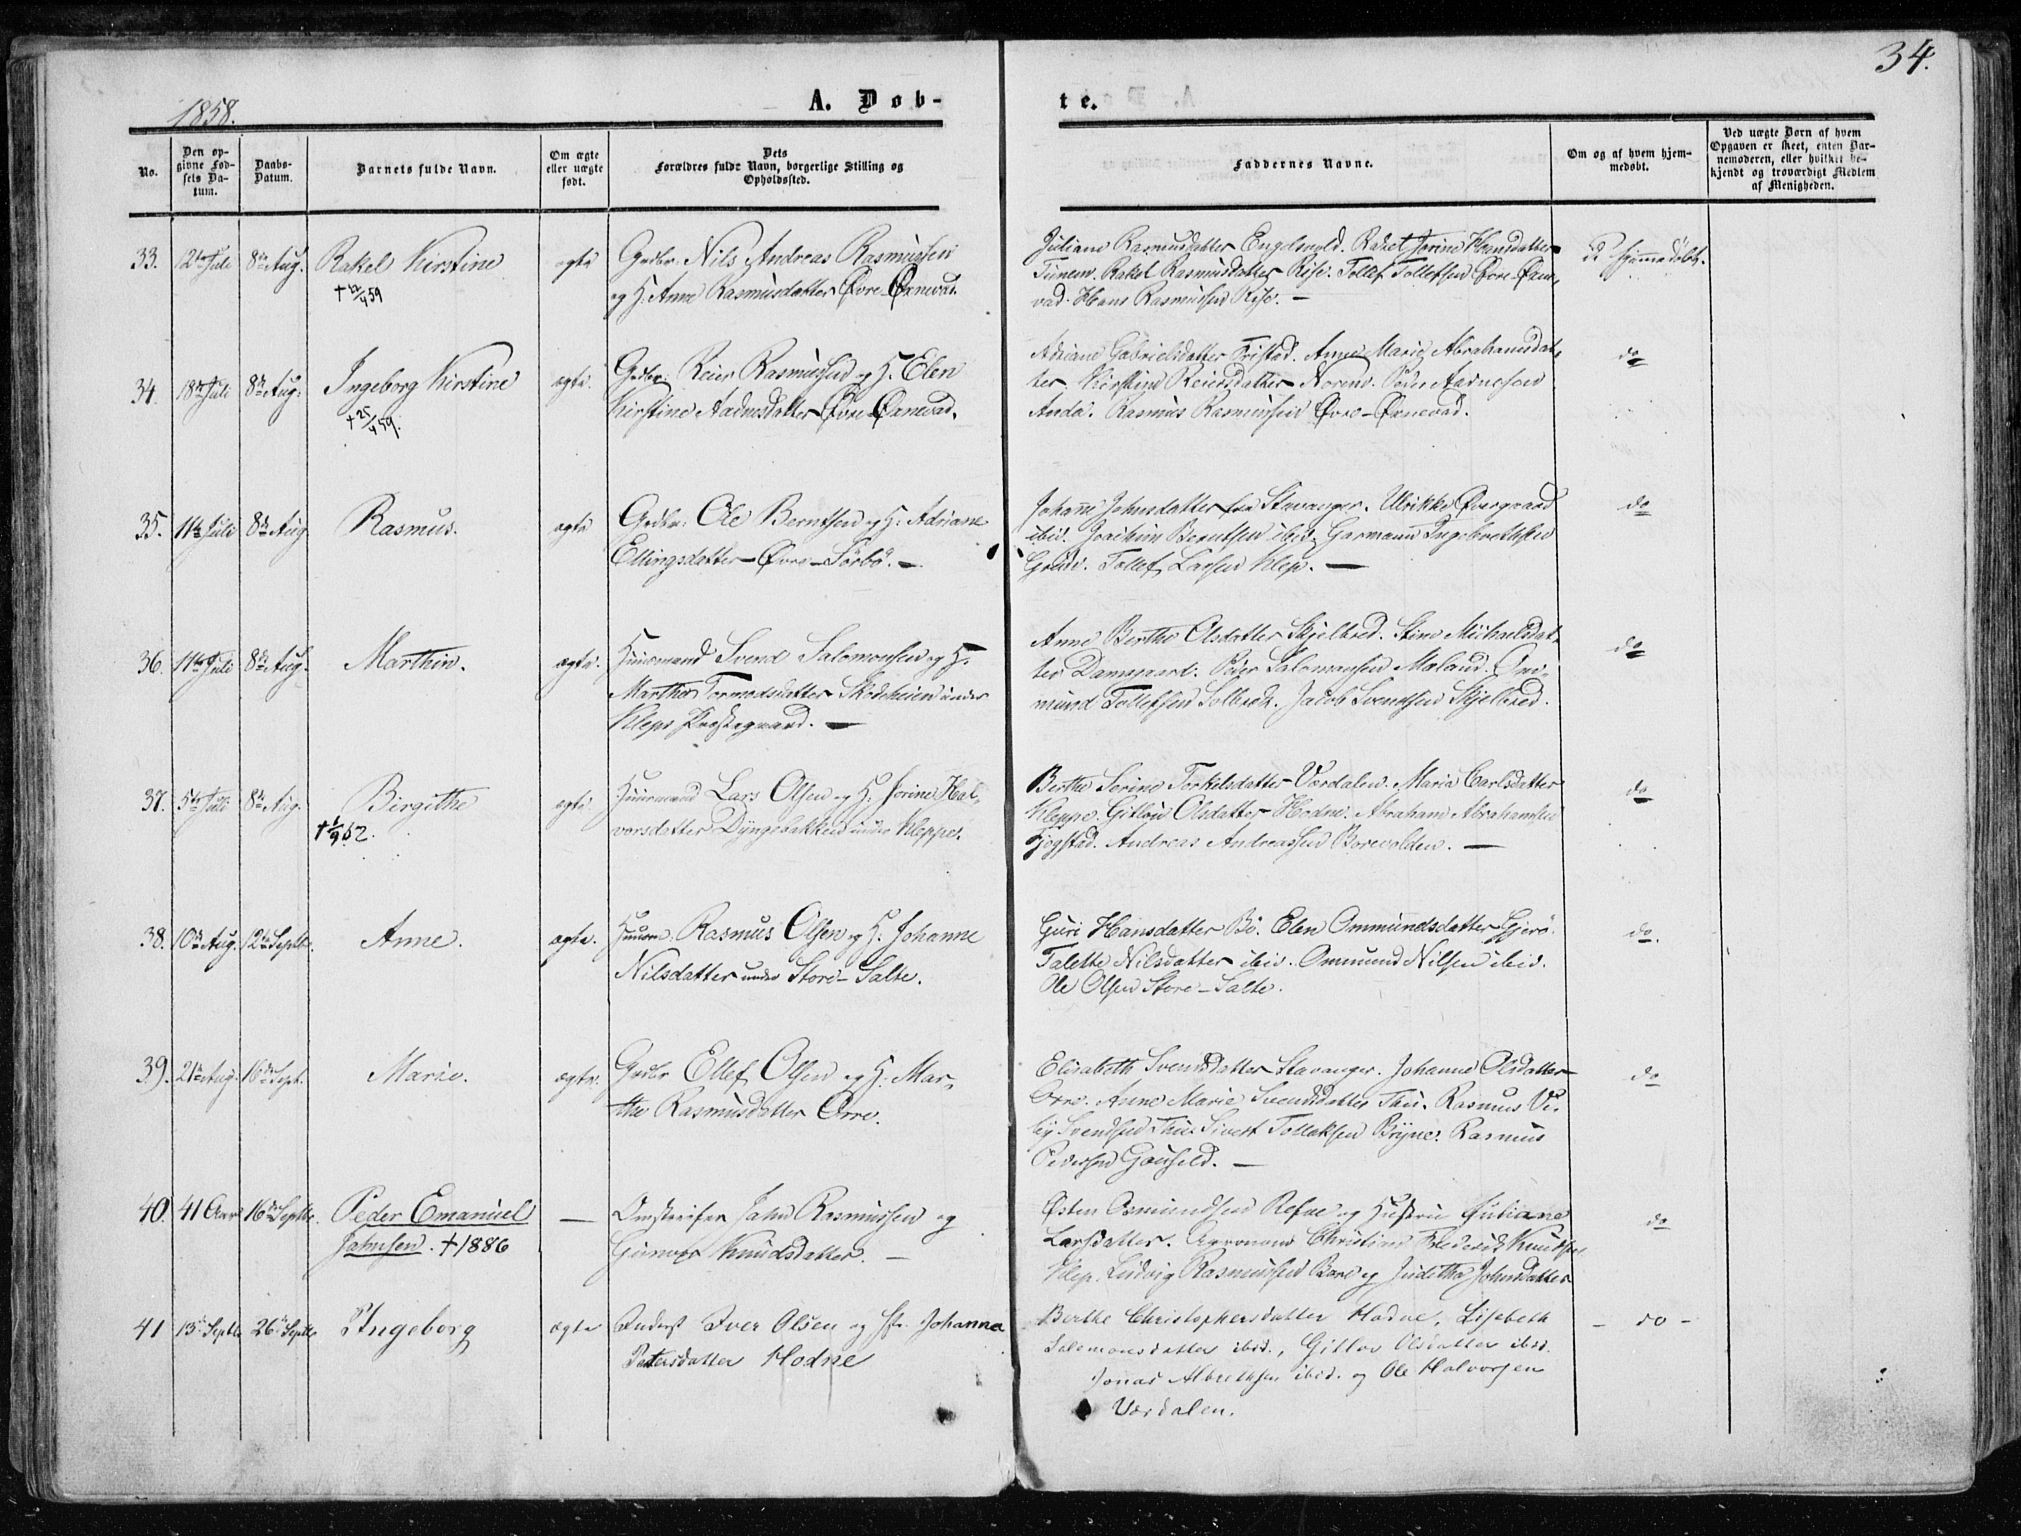 34.
1858.
A. Døb-
te.
No.
Den op-
givne Fød-
sels Da-
tum.
Daabs-
Datum.
Barnets fulde Navn.
Om ægte
eller uægte
født.
Dets
Forældres fulde Navn, borgerlige Stilling og
Opholdssted.
Faddernes Navne.
Om og af hvem hjem-
medøbt.
Ved uægte Børn af hvem
Opgaven er skeet, enten Bar-
nemoderen, eller hvilket be-
kjendt og troværdigt Medlem
af Menigheden.
33. 12te Juli 8de Aug. Rakel Kirstine ægte Grdbr. Nils Andreas Rasmussen
og H. Anne Rasmusdatter Øvre-Ørnevad.
Juliane Rasmusdatter Engelsvold. Rakel Serine Hansdatter
Tunem. Rakel Rasmusdatter Rise. Tollef Tollefsen Øvre-Ørne-
vad. Hans Rasmussen Rise. —
hjemmedøbt.
34. 18de Juli 8de Aug. Ingeborg Kirstine ægte. Grdbr. Reier Rasmussen og H. Elen
Kirstine Aadnesdatter Øvre Ørnevad.
Adriane Gabrielsdatter Fristad. Anne Marie Abrahamsdat-
ter. Kirstine Reiersdatter Norem. Peder Aadnesen
Anda. Rasmus Rasmussen Øvre-Ørnevad.
do
35. 11te Juli 8de Aug Rasmus. ægte Grdbr: Ole Berntsen og H. Adriane
Ellingsdatter Øvre-Sörbö. —
Johanne Johnsdatter fra Stavanger. Ulrikke Øvregaard
ibid. Joachim Berntsen ibid. Garmann Ingebrethsen
Grude. Tollef Larsen Klep. —
do
36. 11te Juli 8de Aug. Marthin. ægte. Huusmand Svend Salomonsen og H.
Marthe Tormodsdatter Skideheien under
Kleps Præstegaard. —
Anne Berthe Olsdatter Skjelbred. Stine Michaelsdat-
ter Damsgaard. Peder Salomonsen Maland. Om-
mund Tollefsen Solbrek. Jacob Svendsen Skjelbred.
do
37. 5te Juli 8de Aug. Birgithe ægte. Huusmand Lars Olsen og H. Serine Hal-
vorsdatter Dyngebakken under Kleppe.
Berthe Serine Torkelsdatter Værdalen. Maria Carlsdatter
Kleppe. Gitlou Olsdatter Hodne. Abraham Abrahamsen
Tjøgstad. Andreas Andreassen Borevolden. —
do
38. 10de Aug. 12te Septbr. Anne. ægte. Huusm. Rasmus Olsen og H. Johanne
Nilsdatter under Store-Salte.
Guri Hansdatter Bö. Elen Ommundsdatter Gjerö.
Talette Nilsdatter ibid. Ommund Nilsen ibid.
Ole Olsen Store-Salte.
do.
39. 21de Aug. 16de Sept. Marie. ægte. Grdbr Ellef Olsen og H. Mar-
the Rasmusdatter Orre.
Elisabeth Svendsdatter Stavanger. Johanne Olsdatter
Orre. Anne Marie Svendsdatter Thu. Rasmus
Svendsen Thu. Sivert Tollaksen Bryne. Rasmus
Pedersen Gausel. —
do
40. 41 Aar 16de Septbr. Peder Emanuel
Jahnsen. † 1886 — Omstreifer Jahn Rasmussen og
Gunvor Knudsdatter. —
Østen Osmundsen Refne og Hustru Juliane
Larsdatter. Agronom Christian Frederik Knudsen
Klep. Ludvig Rasmussen Bore og Juditha Johnsdatter
do
41 13de Septbr 26de Septbr Ingeborg ægte Inderst Iver Olsen og Hr. Johanna
Petersdatter Hodne
Berthe Christophersdatter Hodne, Lisebeth
Salemonsdatter ibid., Gitlov Olsdatter ibid.
Jonas Albrethsen ibid. og Ole Halvorsen
Værdalen.
- do -